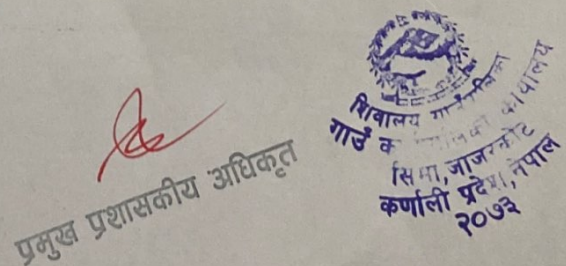 प्रमुख प्रशासकीय अधिकृत
शिवालय गाउँपालिका
गाउँ कार्यपालिकाको कार्यालय
सिमा, जाजरकोट
कर्णाली प्रदेश, नेपाल
२०७३